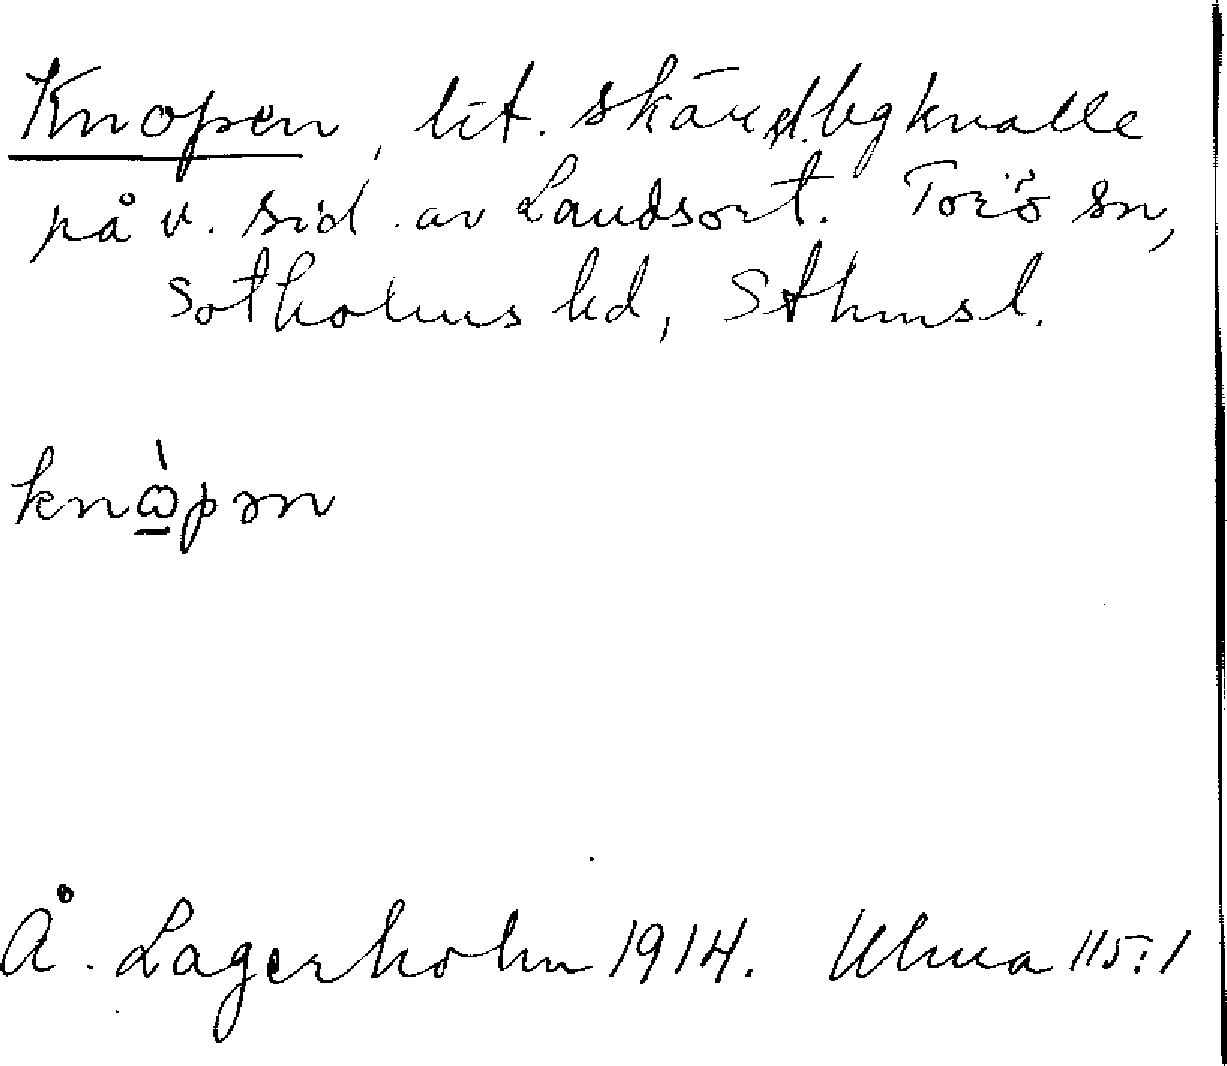 Knopen, lit. skärgd.bgknalle
på v. sid. av Landsort. Torö sn,
Sotholms hd, Sthmsl.
knὼ̱pən
Å. Lagerholm 1914. Ulma 115:1